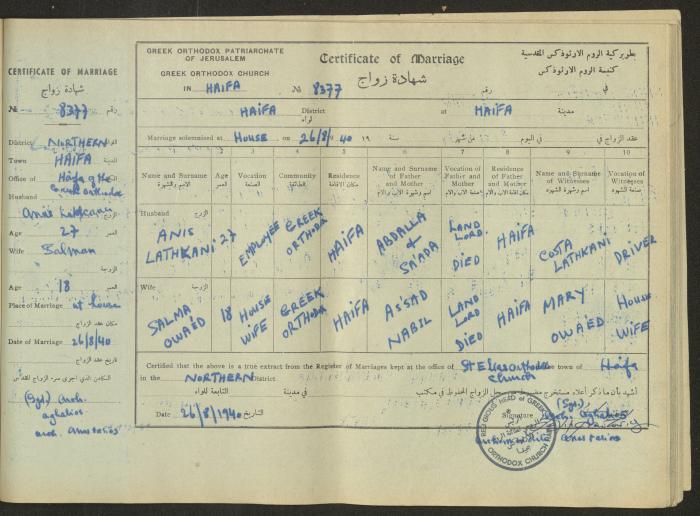 CERTIFICATE OF MARRIAGE
شهادة زواج
№ 8377 رقم
District NORTHERN
Town HAIFA
Office of Haifa of the
Greek orthodox
Husband
Anis Lathkani
Age
27
Wife
Salman
الزوجة
Age
18
Place of Marriage at house
مكان عقد الزواج
Date of Marriage 26/8/40
تاريخ عقد الزواج
(Sgd.) Arch.
aghabios
arch. anastasios
GREEK ORTHODOX PATRIARCHATE
OF JERUSALEM
GREEK ORTHODOX CHURCH
IN HAIFA
Certificate of Marriage
شهادة زواج
№ 8377 رقم
بطريركية الروم الارثوذكس المقدسية
كنيسة الروم الارثوذكس
في
HAIFA District لواء at HAIFA مدينة
Marriage solemnised at HOUSE on 26/8/40 19 سنة من شهر في اليوم عقد الزواج في
1 2 3 4 5 6 7 8 9 10
Name and Surname الاسم والشهرة
Age العمر
Vocation الصنعة
Community الطائفة
Residence مكان الاقامة
Name and Surname of Father and Mother اسم وشهرة الاب والام
Vocation of Father and Mother صنعة الاب والام
Residence of Father and Mother مكان اقامة الاب والام
Name and Surname of Witnesses اسم وشهرة الشهود
Vocation of Witnesses صنعة الشهود
Husband الزوج
ANIS LATHKANI
27
EMPLOYEE
GREEK ORTHODOX
HAIFA
ABDALLA & SA'ADA
LAND LORD. DIED
HAIFA
COSTA LATHKANI
DRIVER
Wife الزوجة
SALMA OWAED
18
HOUSE WIFE
GREEK ORTHODOX
HAIFA
AS'SAD NABIL
LAND LORD DIED
HAIFA
MARY OWAED
HOUSE WIFE
Certified that the above is a true extract from the Register of Marriages kept at the office of St Elias Orthodox Church the town of Haifa
in the NORTHERN District التابعة للواء في مدينة
Date 26/8/1940 التاريخ
(Sgd.)
Signature
aghabios
anastasios
RELIGIOUS HEAD OF GREEK
ORTHODOX CHURCH HAIFA